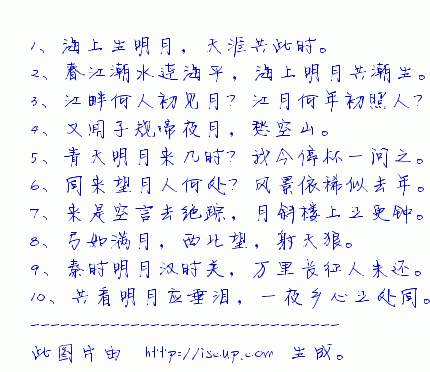 1、海上生明月，天涯共此时。
2、春江潮水连海平，海上明月共潮生。
3、江畔何人初见月？江月何年初照人？
4、又闻子规啼夜月，愁空山。
5、青天明月来几时？我今停杯一问之。
6、同来望月人何处？风景依稀似去年。
7、来是空言去绝踪，月斜楼上五更钟。
8、弓如满月，西北望，射天狼。
9、秦时明月汉时关，万里长征人未还。
10、共看明月应垂泪，一夜乡心五处同。
--------------------------------
此图片由 http://iscup.com 生成。